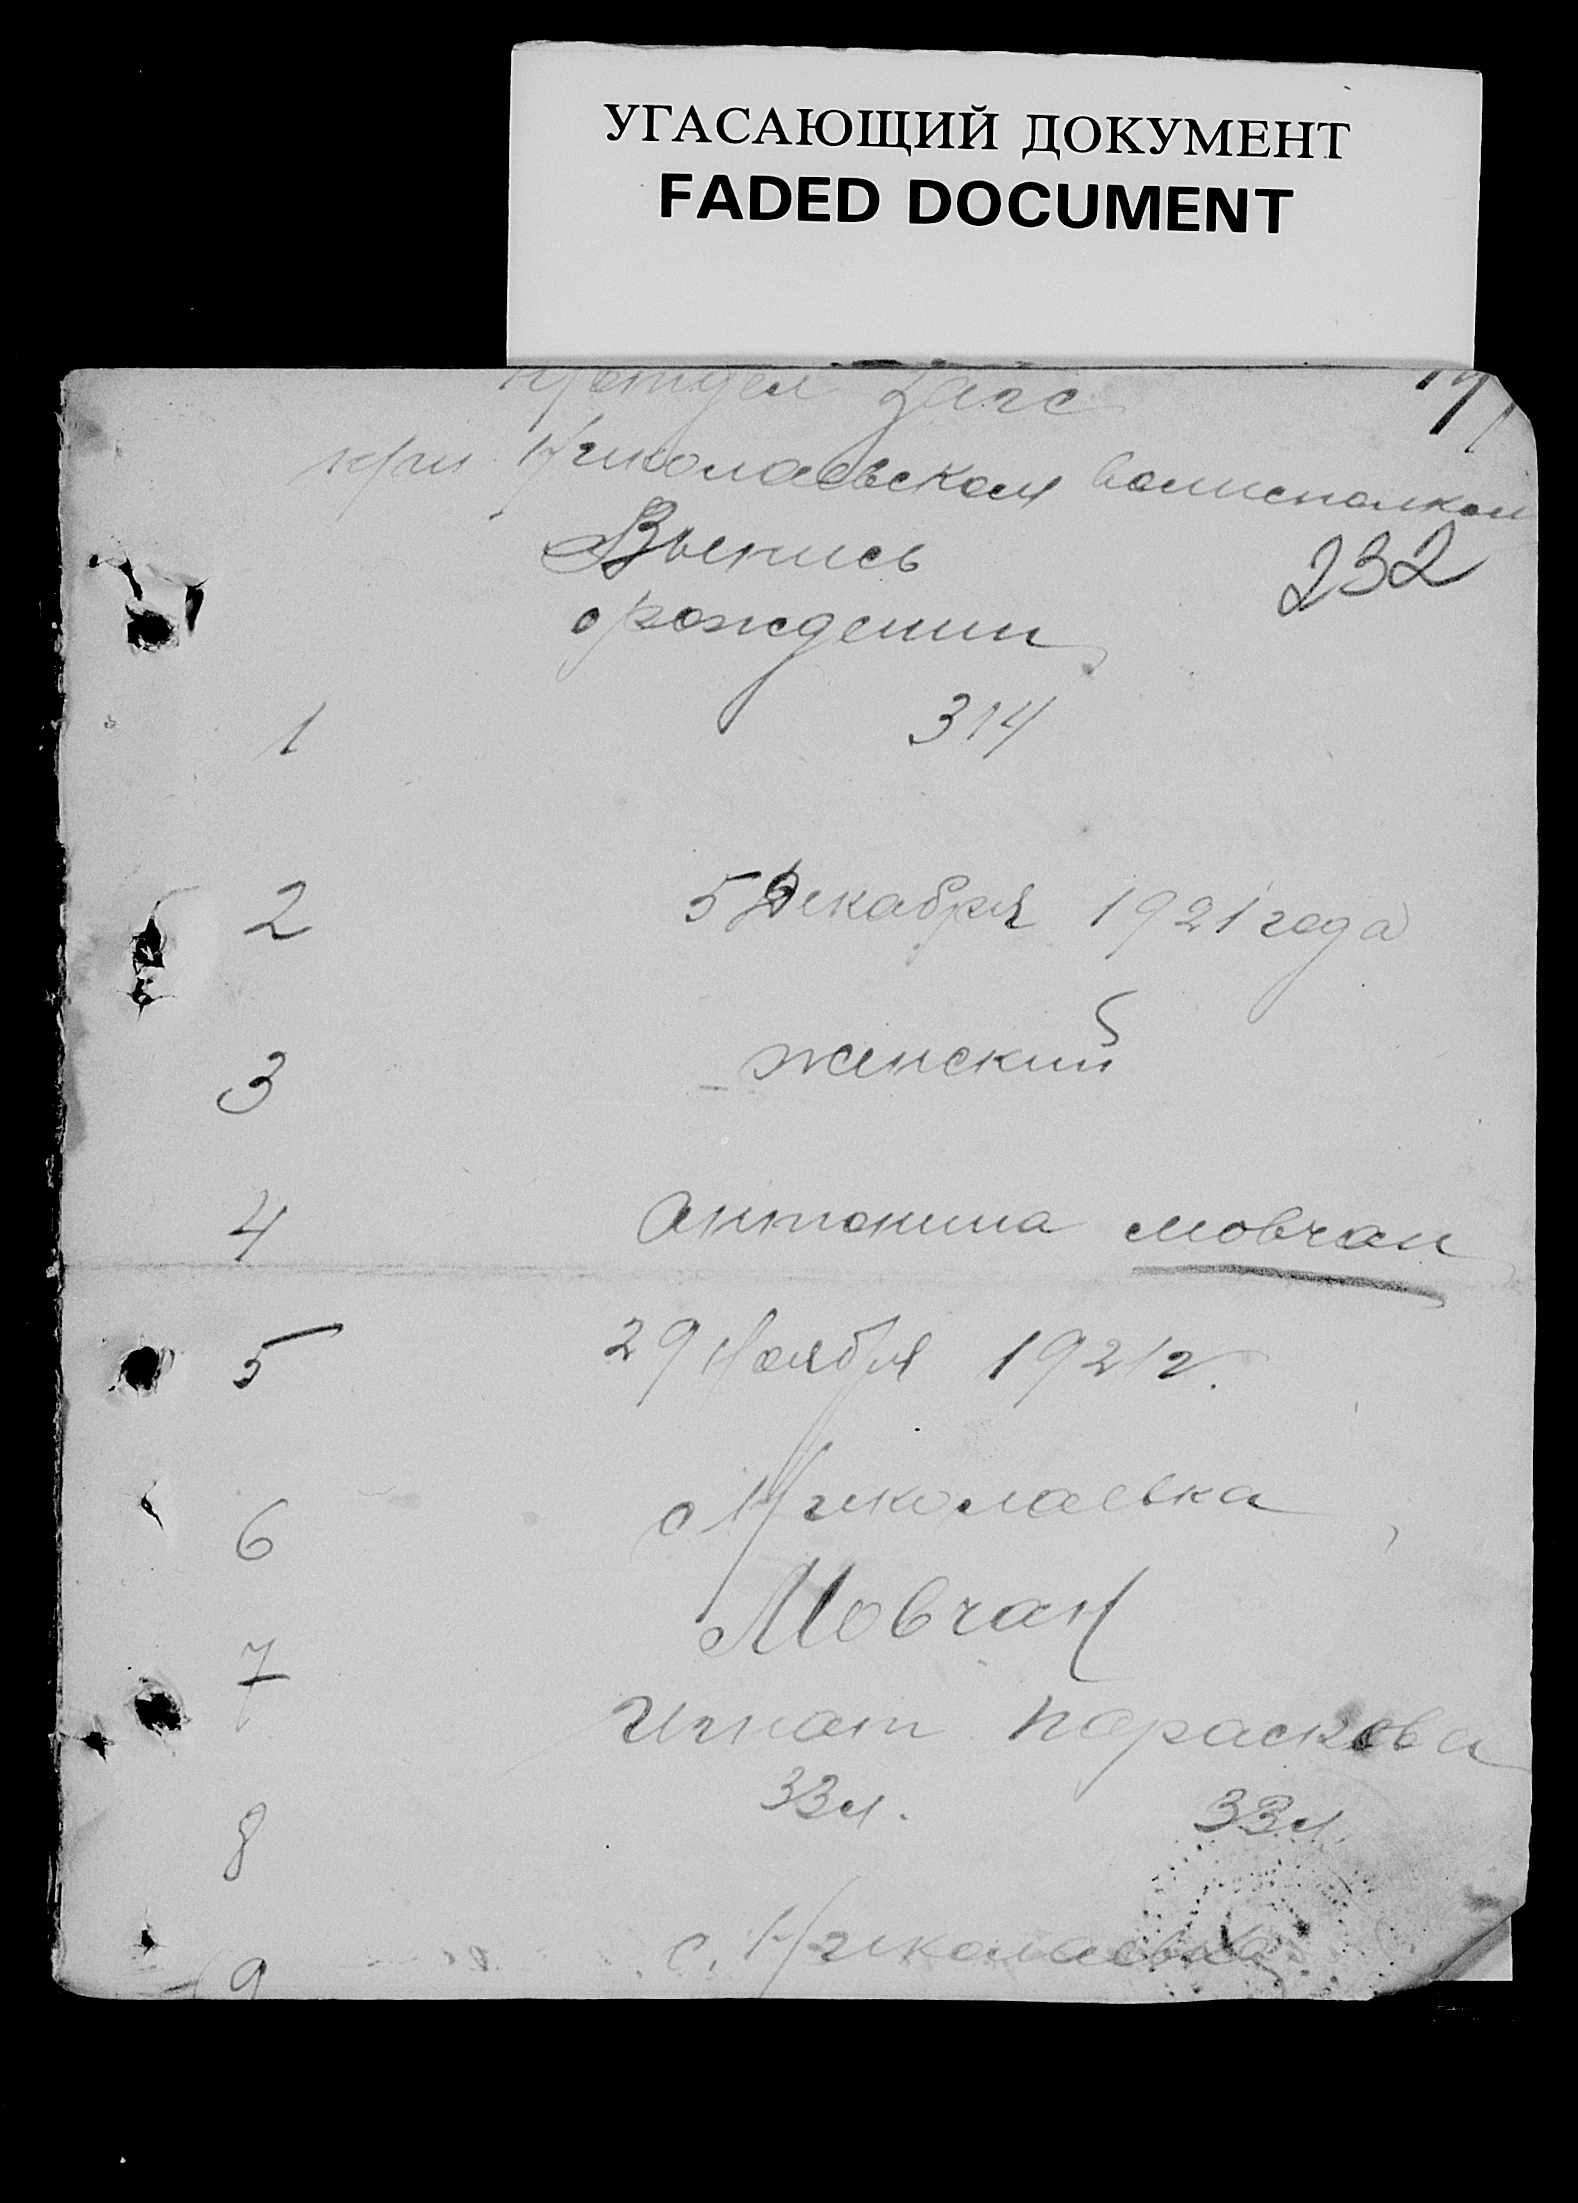 УГАСАЮЩИЙ ДОКУМЕНТ
FADED DOCUMENT
Загс
при Николаевском волисполком
Выпись
232
о рождении
1 314
2 5 Декабря 1921 года
3 женский
4 Антонина Мовчан
5 29 Ноября 1921 г.
6 с Николаевка
Мовчан
7 Игнат Параскева
33 л. 33 л.
8
9 с. Николаевка